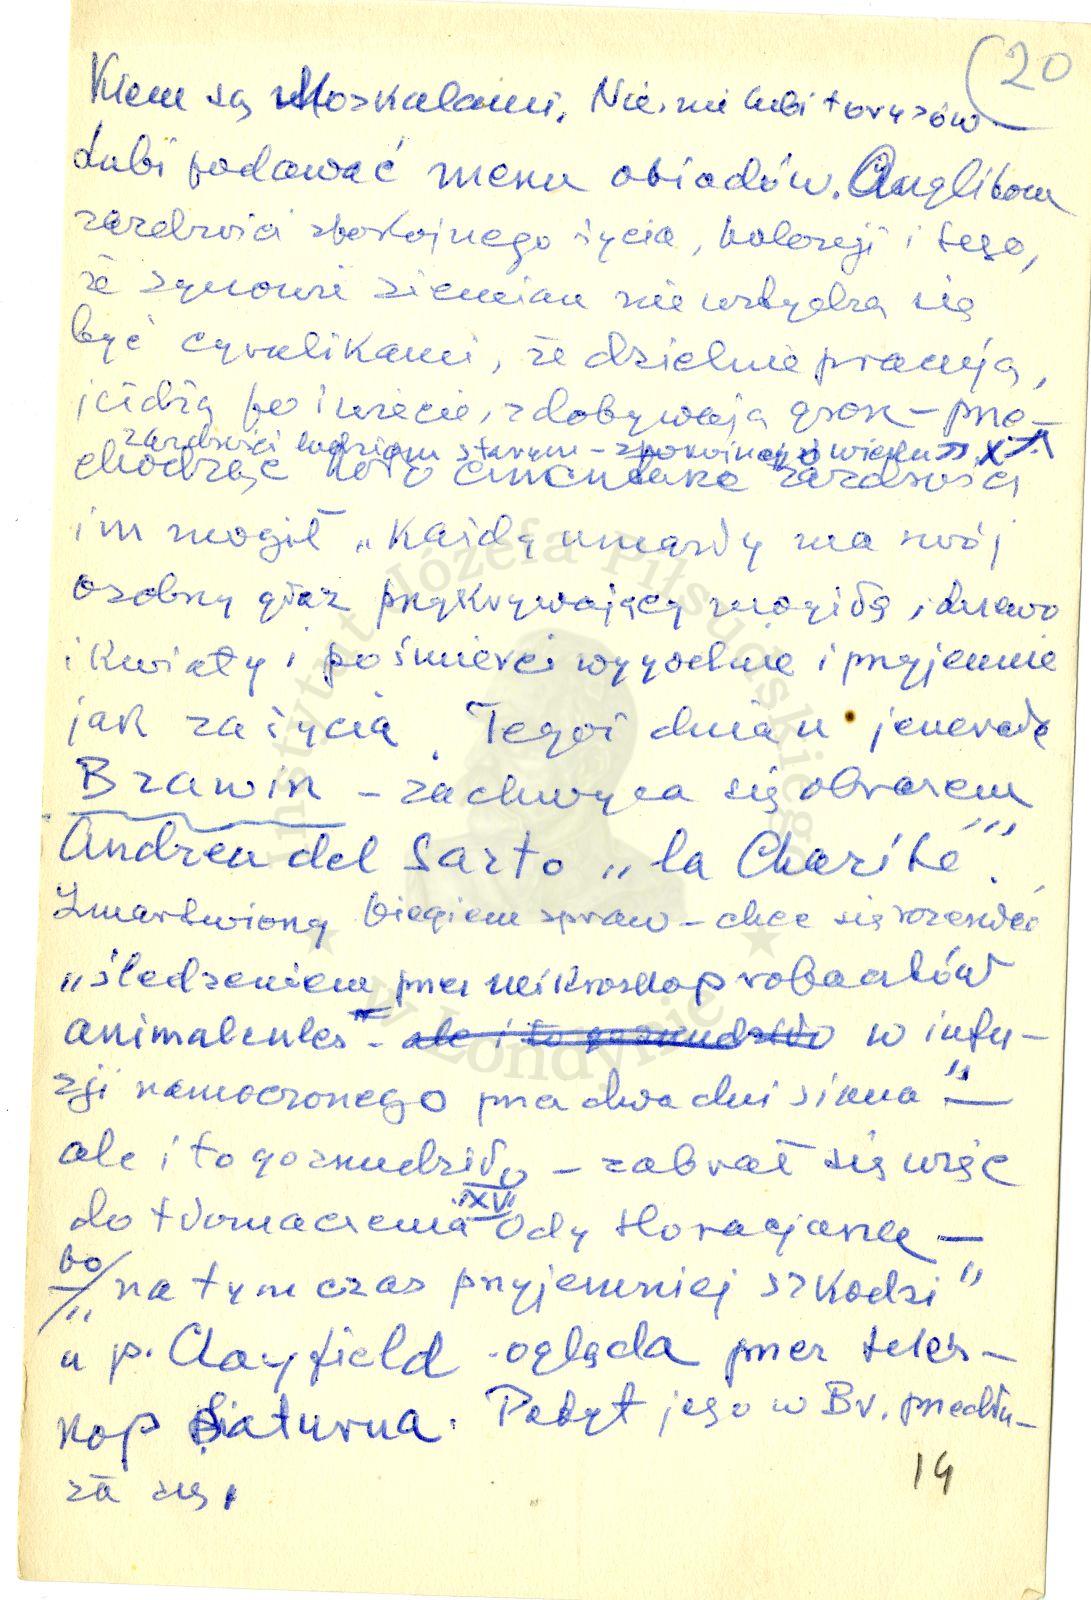 (20
Kiem są Moskalami. Nie, nie lubi torysów
Lubi podawać menu obiadów. Anglikom
zazdrości spokojnego życia, kolezji i tego,
że synowie ziemian nie wstydzą się
być cyrulikami, że dzielnie pracują,
jeżdżą po świecie, zdobywają grosz – prze–
zazdrości ludziom starym – spokojnego wieku" X
chodząc koło cmentarza zazdrości
im mogił „Każdy umarły ma swój
osobny głaz przykrywający mogiłę, drzewo
i kwiaty i po śmierci wygodnie i przyjemnie
jak za życia. Tegoż dnia u jenerała
Brawin – zachwyca się obrazem
Andrea del Sarto „la Charité".
Zmartwiony biegiem spraw – chce się rozerwać
„śledzeniem przez mikroskop robaczków
animalcules" – ale i to go znudziło w infu–
zji namoczonego przez dwa dni siana" –
ale i to go znudziło – zabrał się więc
do tłomaczenia XV Ody Horacjusza –
bo „na tymczas przyjemniej szkodzi"
u p. Clayfield ogląda przez teles–
kop Saturna. Pobyt jego w Br. przedłu–
ża się.
14
Instytut Józefa Piłsudskiego
w Londynie